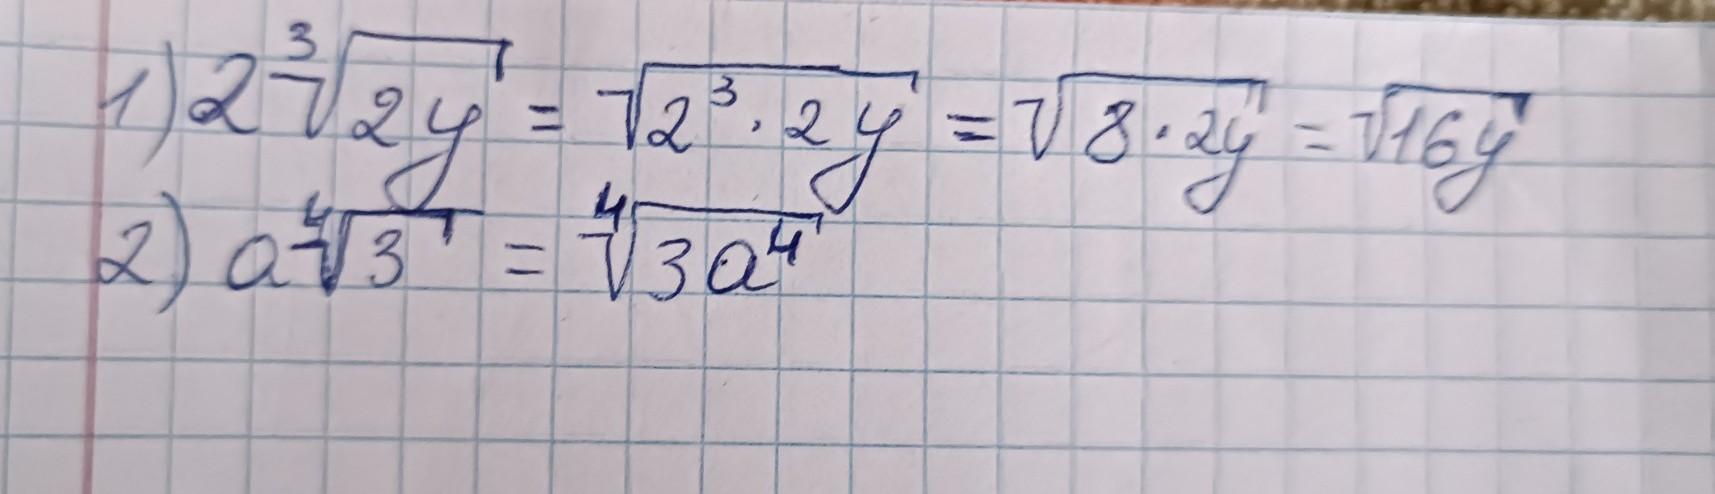 1) 2∛(2y) = √(2³ · 2y) = √(8 · 2y) = √(16y)
2) a∜3 = ∜(3a⁴)